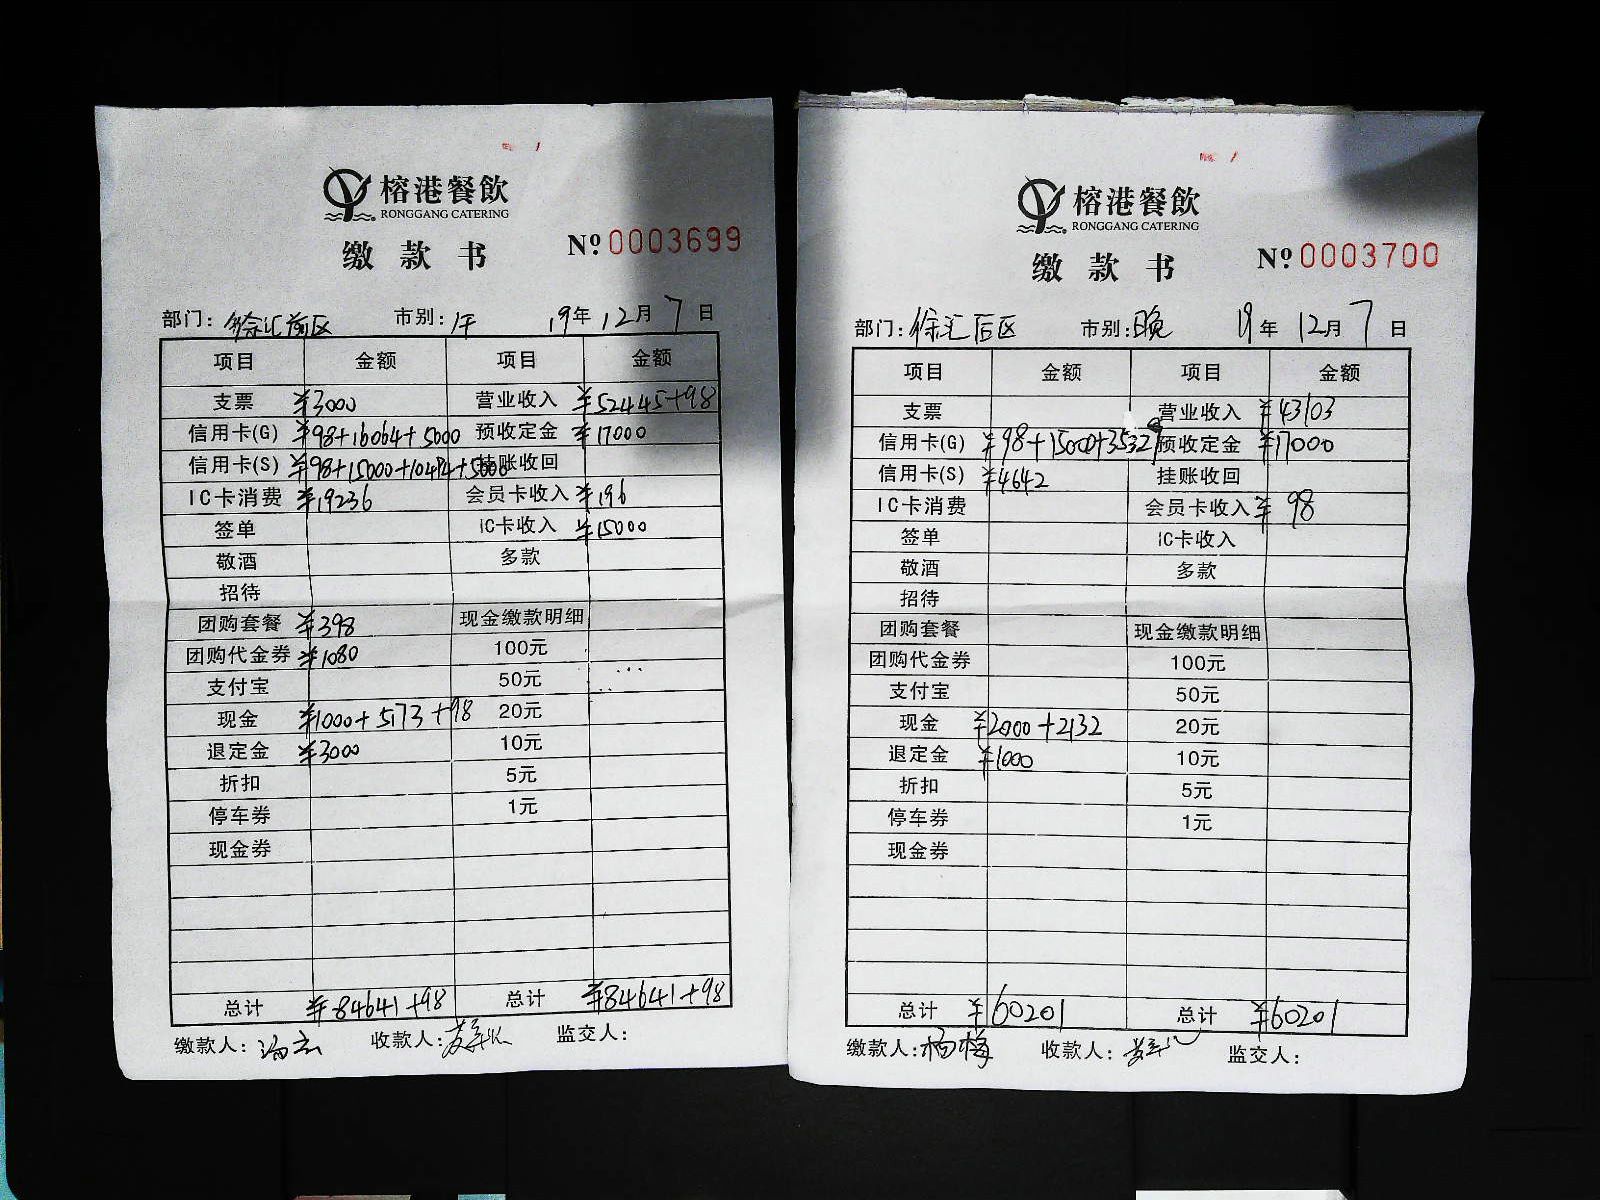 榕港餐飲
RONGGANG CATERING
缴款书 № 0003699
部门：徐汇前区 市别：午 19年12月7日
项目 金额 项目 金额
支票 ¥3000 营业收入 ¥52445+98
信用卡(G) ¥98+16064+5000 预收定金 ¥17000
信用卡(S) ¥98+15000+10494+5000 挂账收回
IC卡消费 ¥19236 会员卡收入 ¥196
签单 IC卡收入 ¥15000
敬酒 多款
招待
团购套餐 ¥398 现金缴款明细
团购代金券 ¥1080 100元
支付宝 50元
现金 ¥1000+5173+98 20元
退定金 ¥3000 10元
折扣 5元
停车券 1元
现金券
总计 ¥84641+98 总计 ¥84641+98
缴款人： 收款人： 监交人：
榕港餐飲
RONGGANG CATERING
缴款书 № 0003700
部门：徐汇后区 市别：晚 19年12月7日
项目 金额 项目 金额
支票 营业收入 ¥43103
信用卡(G) ¥98+15000+35329 预收定金 ¥17000
信用卡(S) ¥4642 挂账收回
IC卡消费 会员卡收入 ¥98
签单 IC卡收入
敬酒 多款
招待
团购套餐 现金缴款明细
团购代金券 100元
支付宝 50元
现金 ¥2000+2132 20元
退定金 ¥1000 10元
折扣 5元
停车券 1元
现金券
总计 ¥60201 总计 ¥60201
缴款人：杨梅 收款人： 监交人：